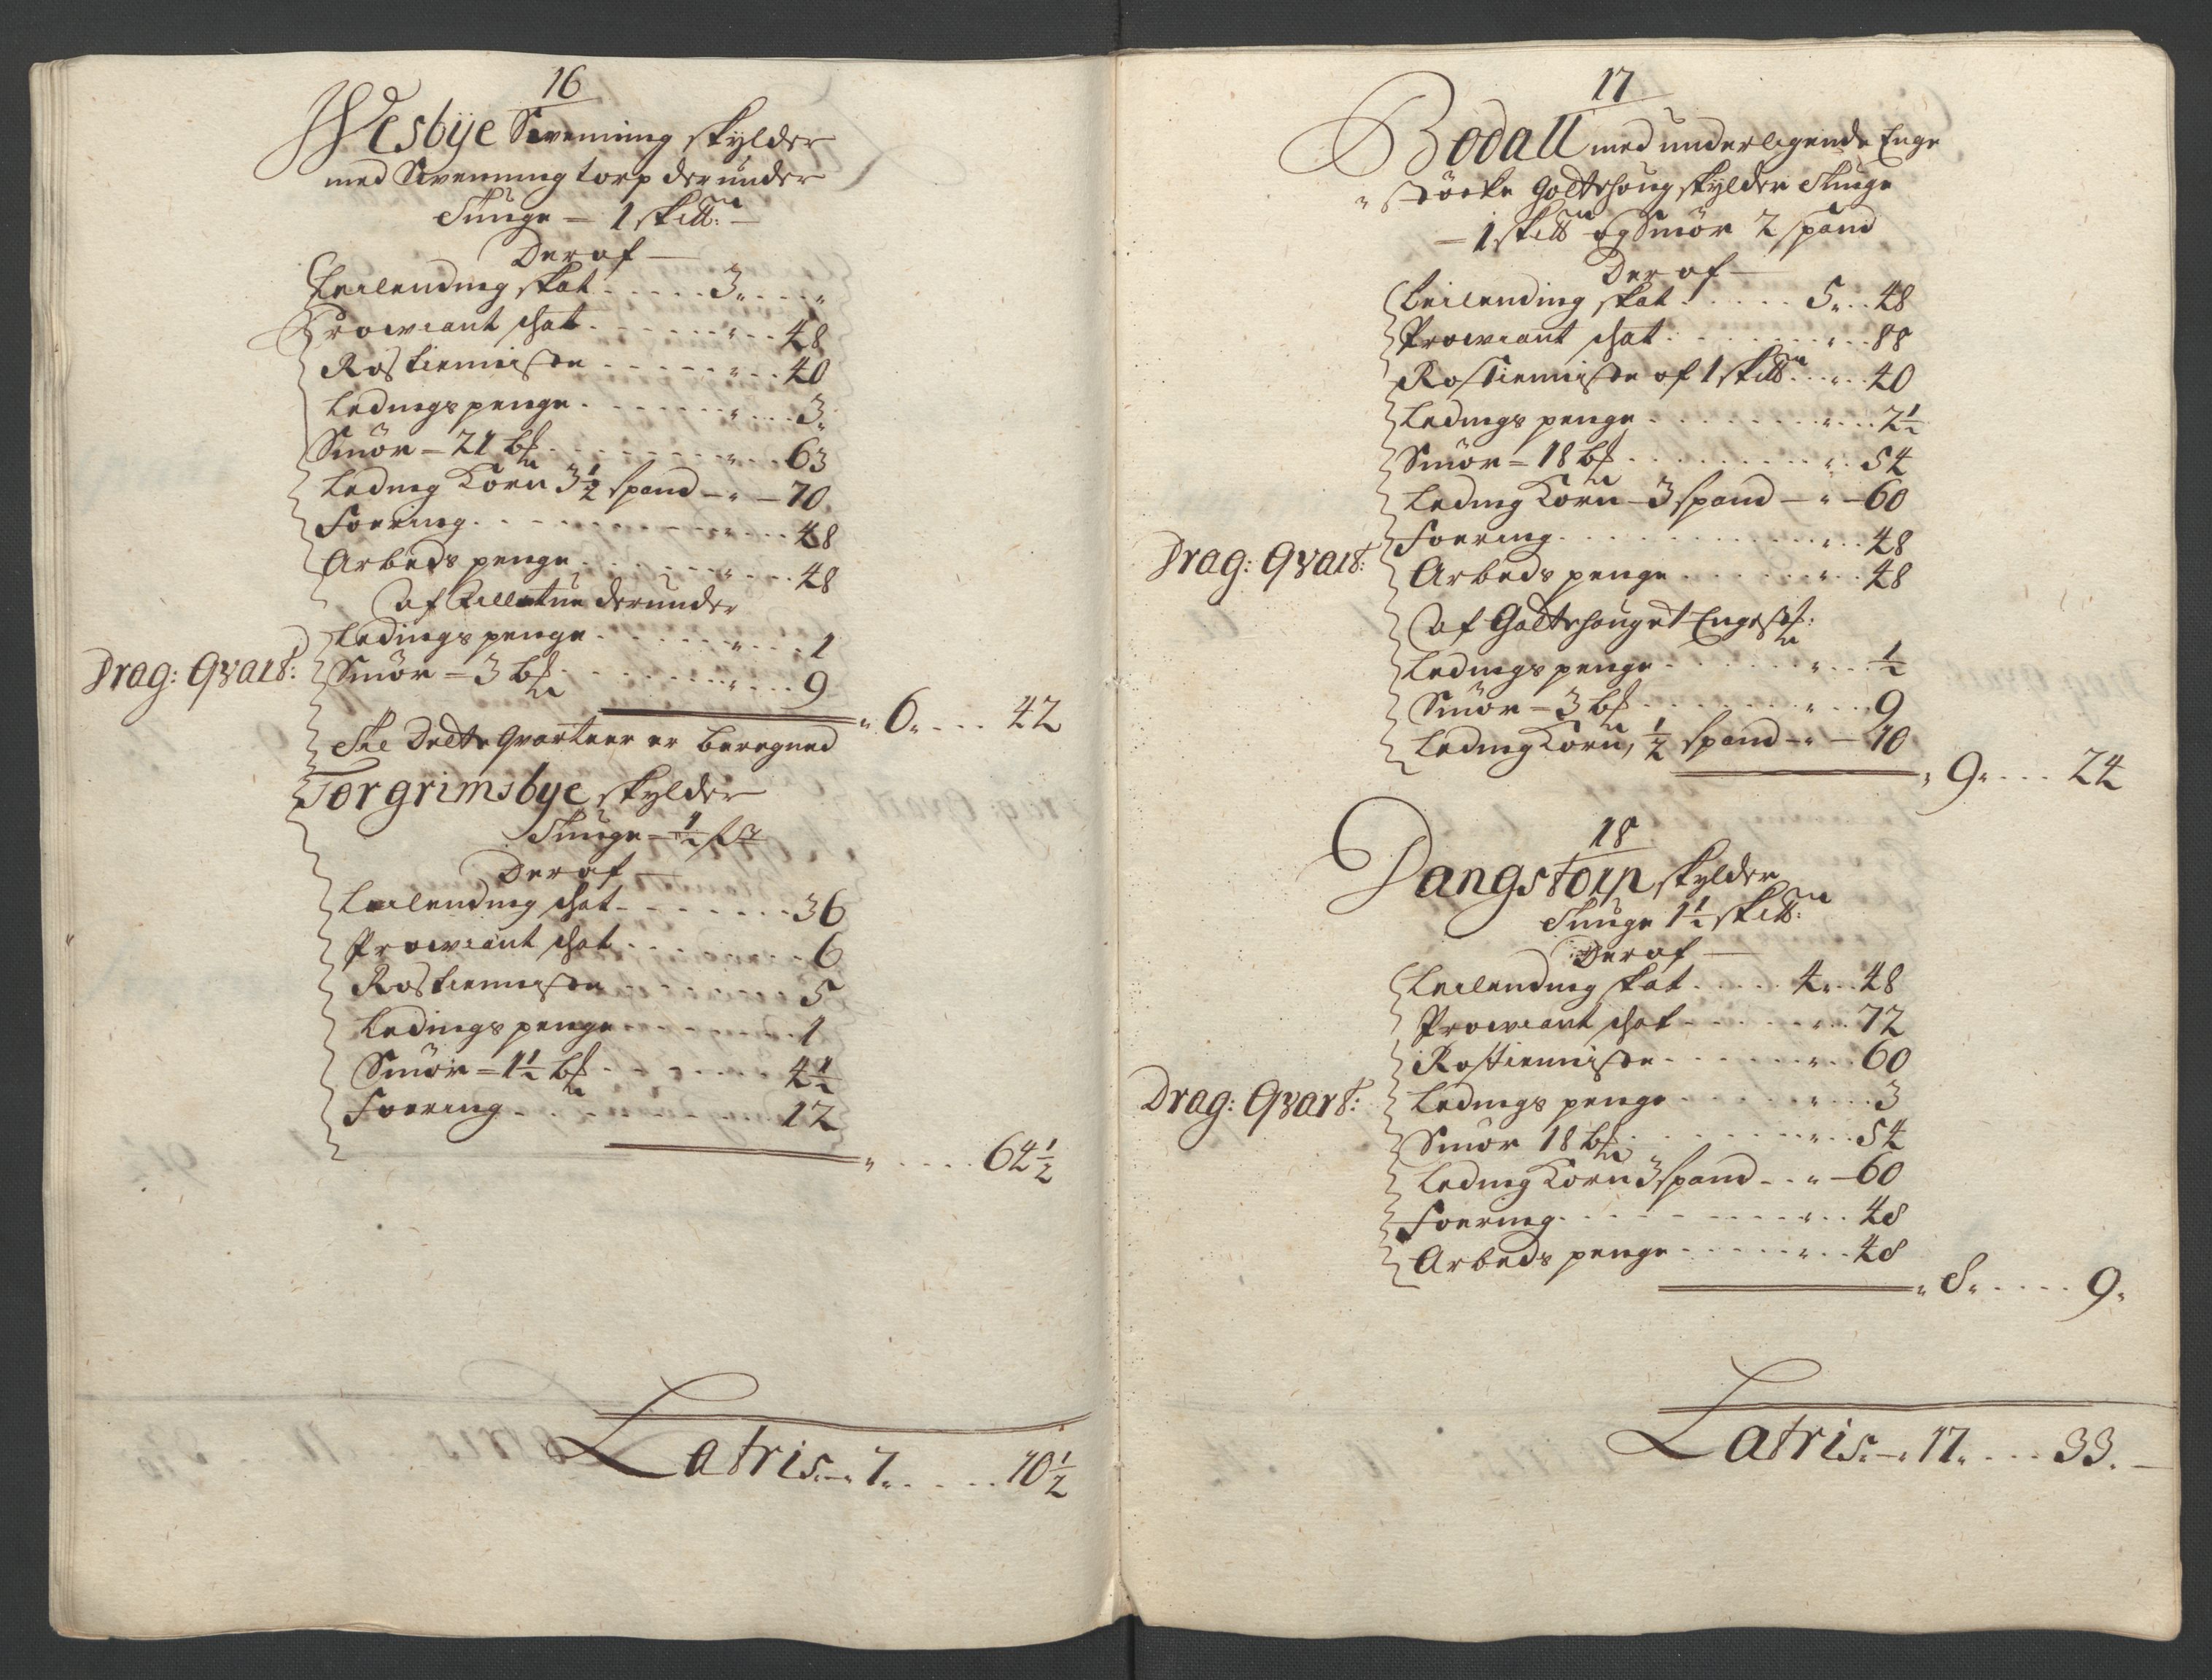 16
Wesbÿe Svenning skylder
med Svenning torp derunder
Hunge – 1 skill:
Deraf
Leilending skat . . . . . 3 . . . "
Prowiant skat . . . . . . " . . 48
Rostieniste . . . . . " . . 40
Ledings penge . . . . . . " . . 3
Smör – 21 b . . . . . . . " . . 63
Leding Korn 3½ spand – " – 70
Foering . . . . . . . . . . . 48
Arbeds penge . . . . . . " . . 48
af Lilletun derunder
Ledings penge . . . . . . " . . 1
Drag: Qvart: Smör – 3 b . . . . . . . " . . 9
" 6 . . . 42
Dette Qvarteer er beregned
Torgrimsbye skylder
Hunge – ½ s
Deraf
Leilending skat . . . . . . . 36
Prowiant skat . . . . . . . 6
Rostieniste . . . . . . . 5
Ledings penge . . . . . . . 1
Smör – 1½ b . . . . . . . 4½
Foering . . . . . . . . . . 12
" . . . . 64½
Latris – " 7 . . . . . 10½
17
Bodall med underligende Enge
Støcke Goltehoug skylder Hunge
– 1 skill og Smör 2 spand
Deraf
Leilending skat . . . . . 5 . . 48
Prowiant skat . . . . . . " . . 88
Rostieniste af 1 skill . . " . . 40
Ledings penge . . . . . . . " . . 2½
Smör – 18 b . . . . . . . . " . . 54
Leding Korn – 3 spand – " – 60
Foering . . . . . . . . . . " . . 48
Drag: Qvart: Arbeds penge . . . . . . " . . 48
af Goltehouget Enge st:
Ledings penge . . . . . . " . . ½
Smör – 3 b . . . . . . . " . . 9
Leding Korn, ½ spand – " – 10
" 9 . . . 24
18
Dangstorp skylder
Hunge 1½ skill:
Deraf
Leilending skat . . . . . 4 . . 48
Prowiant skat . . . . . . " . . 72
Rostieniste . . . . . . . " . . 60
Drag: Qvart: Ledings penge . . . . . . " . . 3
Smör 18 b . . . . . . . . " . . 54
Leding Korn 3 spand . . " – 60
Foering . . . . . . . . . . " . . 48
Arbeds penge . . . . . . " . . 48
" 8 . . . . 9
Latris – " 17 . . . . 33. –